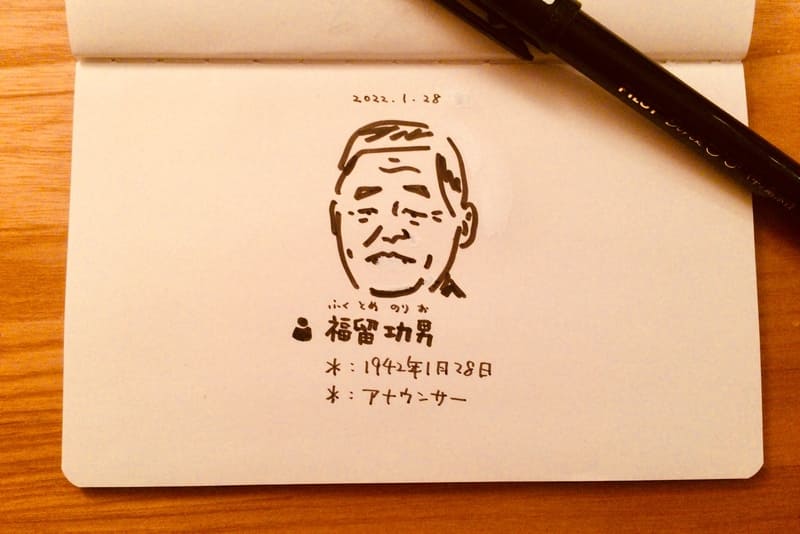 2022.1.28
PILOT
ふくとめ のりお
福留功男
＊：1942年1月28日
＊：アナウンサー